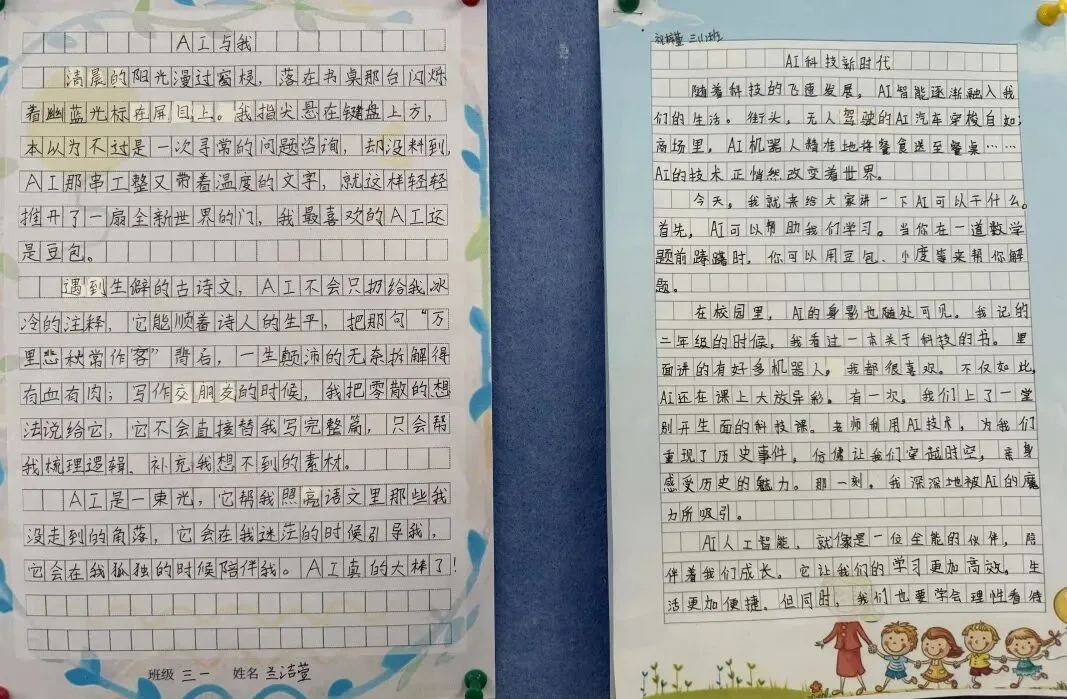 AI与我
清晨的阳光漫过窗棂，落在书桌那台闪烁
着幽蓝光标在屏目上。我指尖悬在键盘上方，
本以为不过是一次寻常的问题咨询，却没料到，
AI那串工整又带着温度的文字，就这样轻轻
推开了一扇全新世界的门，我最喜欢的AI还
是豆包。
遇到生僻的古诗文，AI不会只扔给我冰
冷的注释，它能顺着诗人的生平，把那句“万
里悲秋常作客”背后，一生颠沛的无奈拆解得
有血有肉；写作交朋友的时候，我把零散的想
法说给它，它不会直接替我写完整篇，只会帮
我梳理逻辑、补充我想不到的素材。
AI是一束光，它帮我照亮语文里那些我
没走到的角落，它会在我迷茫的时候引导我，
它会在我孤独的时候陪伴我。AI真的大棒了！
班级 三一 姓名 兰洁萱
三（1）班
AI科技新时代
随着科技的飞速发展，AI智能逐渐融入我
们的生活。街头，无人驾驶的AI汽车穿梭自如；
商场里，AI机器人精准地将餐食送至餐桌……
AI的技术正悄然改变着世界。
今天，我就来给大家讲一下AI可以干什么。
首先，AI可以帮助我们学习。当你在一道数学
题前踌躇时，你可以用豆包、小度等来帮你解
题。
在校园里，AI的身影也随处可见。我记的
二年级的时候，我看过一本关于科技的书。里
面讲的有好多机器人，我都很喜欢。不仅如此，
AI还在课上大放异彩。有一次。我们上了一堂
别开生面的科技课。老师利用AI技术，为我们
重现了历史事件，仿佛让我们穿越时空，亲身
感受历史的魅力。那一刻，我深深地被AI的魔
力所吸引。
AI人工智能，就像是一位全能的伙伴，陪
伴着我们成长。它让我们的学习更加高效，生
活更加便捷。但同时，我们也要学会理性看待